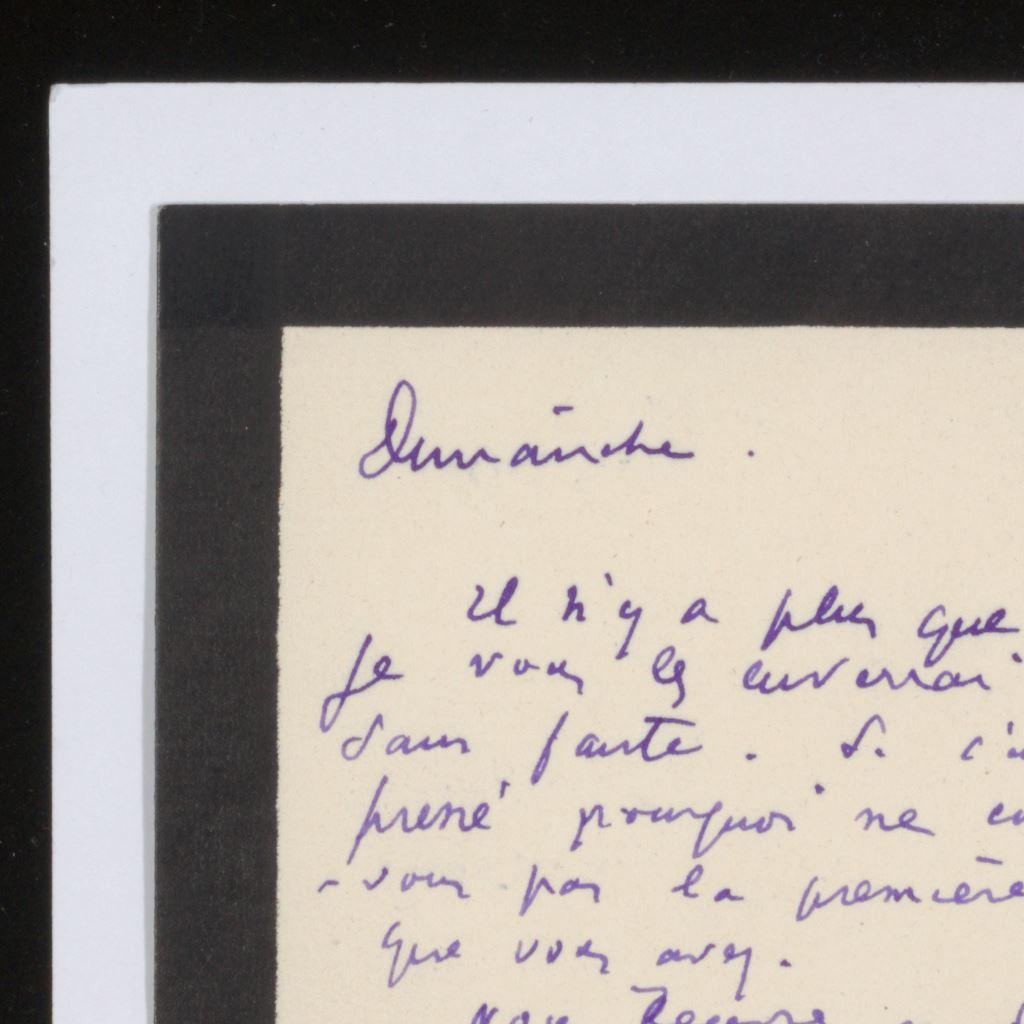 Dimanche.
Il n'y a plus que
Je vous les enverrai
sans faute. Si c'
pressé pourquoi ne
-vous pas la première
que vous avez.